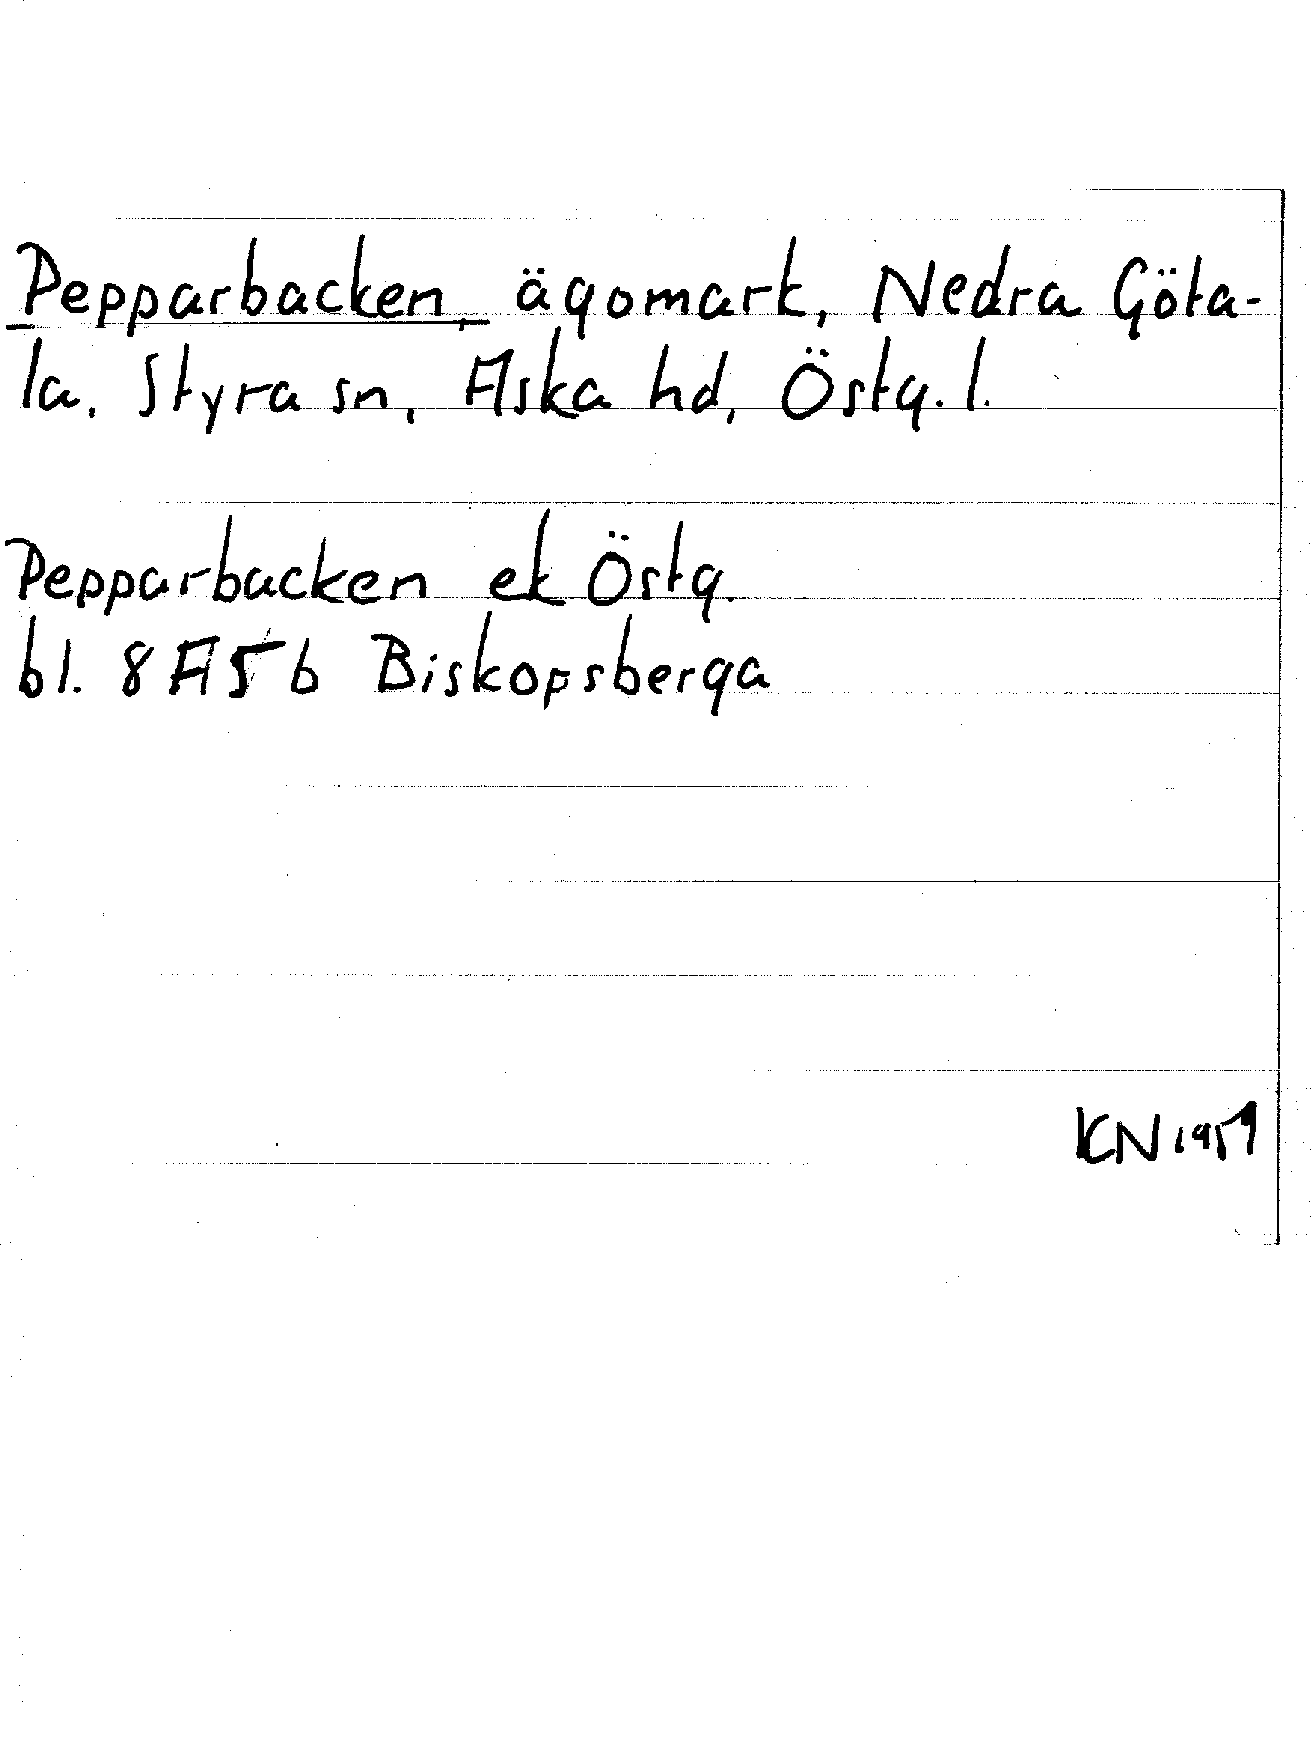 Pepparbacken, ägomark, Nedra Göta-
la, Styra sn, Aska hd, Östg. l.
Pepparbacken ek Östg.
bl. 8 A 5 b Biskopsberga
KN